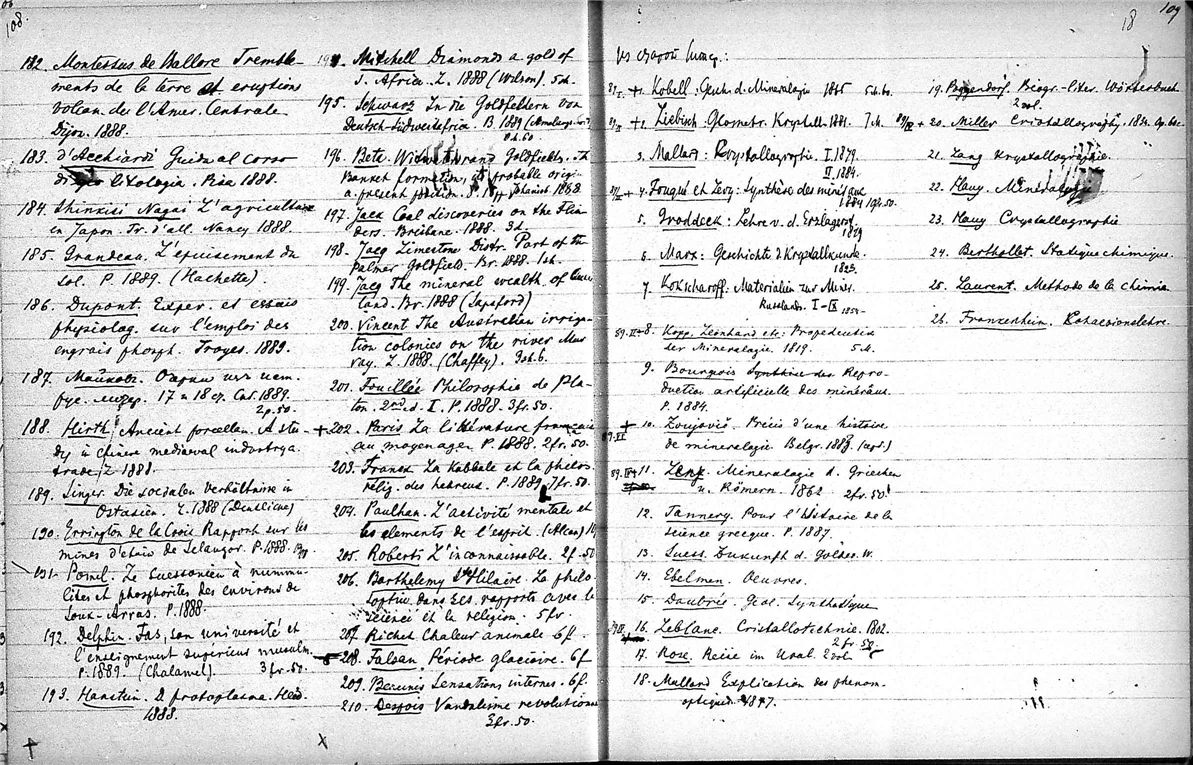 108.
182. Montessus de Ballore Tremble-
ments de la terre et eruption
volcan. de l'Amer. Centrale
Dijon. 1888.
183. d'Acchiardi Guida al corso
di litologia. Pisa 1888.
184. Shinkizi Nagai L'agriculture
en Japon. Tr. d'all. Nancy 1888.
185. Grandeau. L'épuisement du
sol. P. 1889. (Hachette).
186. Dupont. Exper. et essais
physiolog. sur l'emploi des
engrais phosph. Troyes. 1889.
187.
17 и 18 ст. 1889.
2р.50.
188. Hirth. Ancient porcellan. A stu-
dy in chinese mediaeval industry a.
trade. L 1888.
189. Singer. Die socialen Verhältnisse in
Ostasien. L. 1888 (Deuticke)
190. Errington de la Croix Rapport sur les
mines d'étain de Selangor. P. 1888.
191. Pomel. Le Suessonien à nummu-
lites et phosphorites des environs de
Souk-Arras. P. 1888.
192. Delphin. Fas, son université et
l'enseignement supérieur musulm.
P. 1889 (Chalamel). 3 fr. 50.
193. Hanstein. D. protoplasma. Heid.
1888.
194. Mitchell Diamonds a gold of
S. Africa. L. 1888 (Wilson). 5sh.
195. Schwarz In die Goldfeldern von
Deutsch-Südwestafrica B 1889
196. Bete. Witwatersrand Goldfields. Th.
Banket formation, its probable origin
a. present position. 1888.
197. Jack Coal discoveries on the Flin-
ders. Brisbane. 1888. 3d.
198. Jack Limestone Distr. Part of the
Palmer Goldfield. Br. 1888. 1sh.
199. Jack The mineral wealth of Queens
land. Br. 1888
200. Vincent The Australian irriga-
tion colonies on the river Mur
ray. L 1888. (Chaffey).
201. Fouillée Philosophie de Pla-
ton. 2nd éd. I. P. 1888. 3fr. 50.
+202. Paris La littérature française
au moyen age. P. 1888. 2fr. 50.
203. Franck La kabbale et la philos
relig. des hebreux. P. 1889. 7fr. 50.
204. Paulhan. L'activité mentale et
les elements de l'esprit. (Alcan)
205. Roberts L'inconnaissable. 2f. 50
206. Barthelemy St Hilaire. La philo
sophie dans ses rapports avec la
science et la religion. 5fr
207. Richet Chaleur animale 6f.
208. Falsan. Période glaciaire. 6f
209. Beaunis Sensations internes. 6f.
210. Despois Vandalisme revolutionn
3fr. 50.
109
18
+1. Kobell: Gesch. d. Mineralogie 1865
+2. Liebisch: Geometr. Krystall. 1881. 7sh.
3. Mallard: Krystallographie. I. 1879.
II. 1884.
+4. Fouqué et Levy: Synthèse des minéraux
1882
5. Groddeck: Lehre v. d. Erzlagerst.
1879
6. Marx: Geschichte d. Krystallkunde
1825.
7. Kokscharoff: Materialien zur Miner.
Russlands. I-IX
8. Kopp. Leonhard etc: Propedeutik
der Mineralogie. 1817.
9. Bourgeois Repro-
duction artificielle des mineraux.
P. 1884.
+ 10. Zoujovič. Précis d'une histoire
de mineralogie Belgr. 1889.
11. Lenz. Mineralogie d. Griechen
u. Römern. 1862 2fr. 50.
12. Tannery. Pour l'histoire de la
science grecque. P. 1887.
13. Suess. Zukunft d. Goldes. W.
14. Ebelmen. Oeuvres.
15. Daubrée. Geol. Synthétique
16. Leblanc. Cristallotechnie. 1802.
2 fr. 50
17. Rose. Reise im Ural. 2 vol.
18. Mallard Explication des phenom-
optiques
19. Poggendorf. Biogr.-liter. Wörterbuch
2 vol.
+20. Miller Cristallography.
21. Lang Krystallographie.
22. Hauy. Minéralogie
23. Hauy Crystallographie
24. Berthollet. Statique chimique.
25. Laurent. Methode de la chimie
26. Frankenheim. Cohaesionslehre.